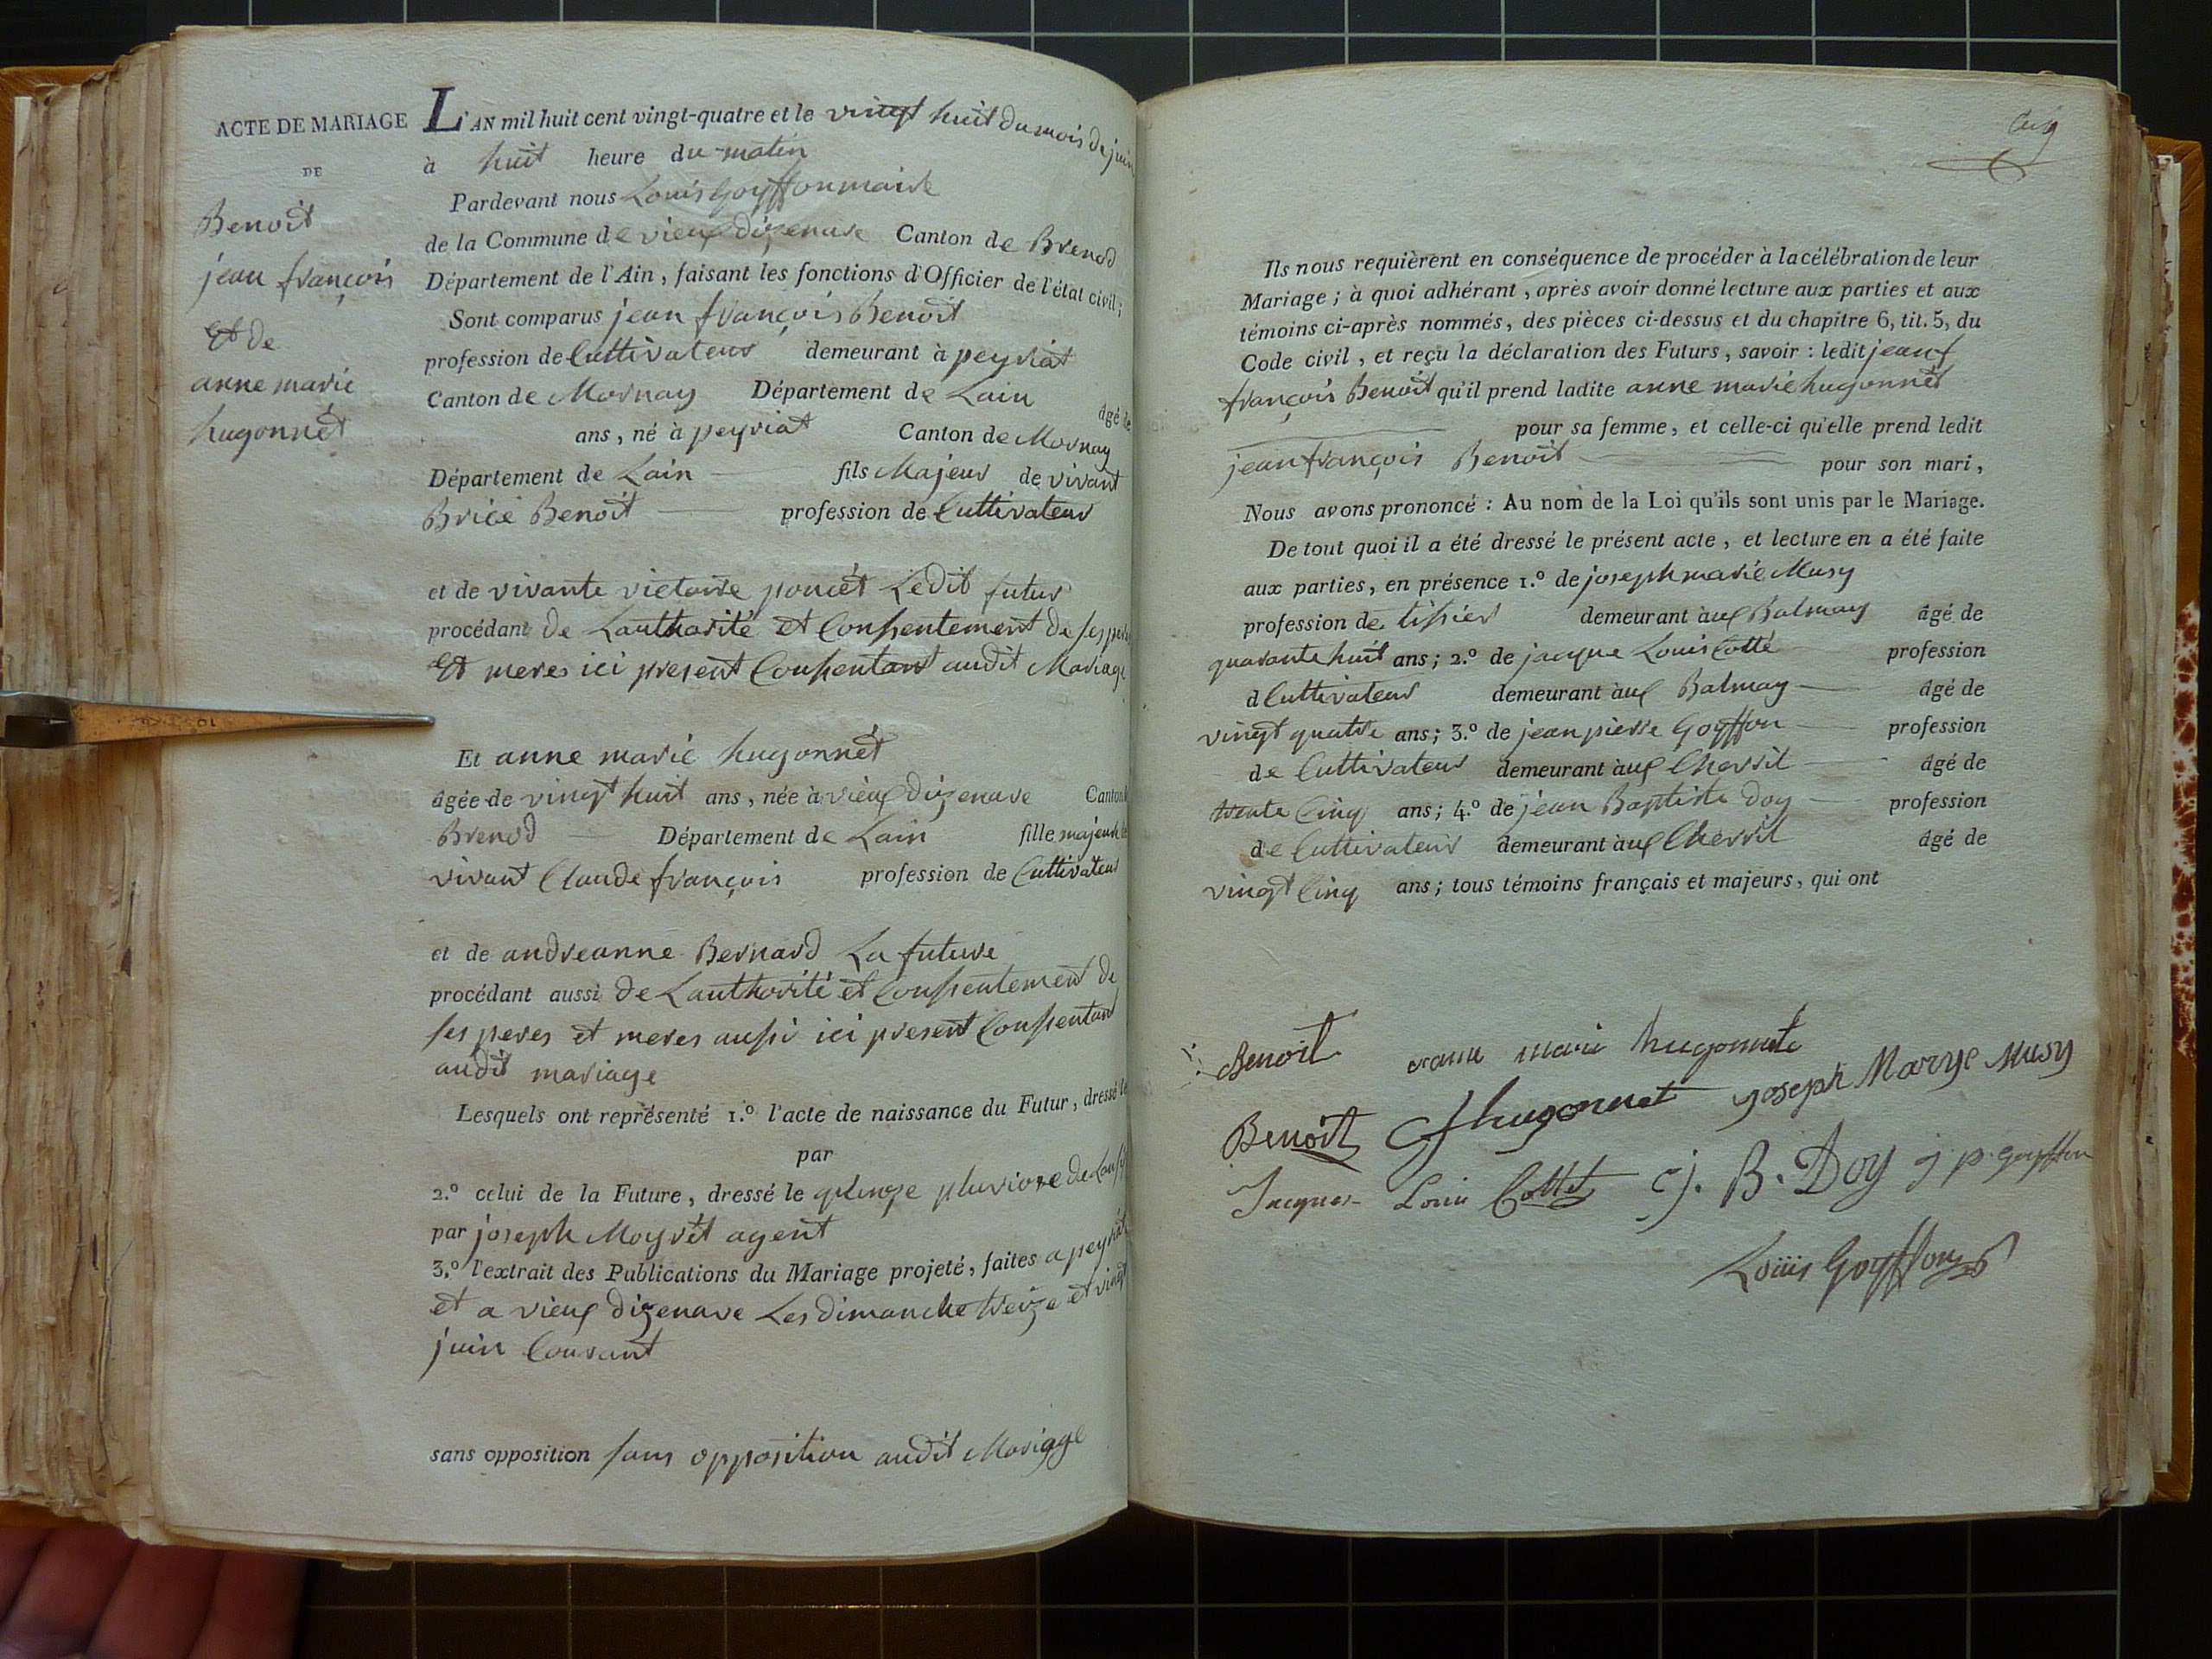 ACTE DE MARIAGE
DE
Benoit
jean françois
Et de
anne marie
hugonnet
L'AN mil huit cent vingt-quatre et le vingt huit du mois de juin
à huit heure du matin
Pardevant nous Louis Goyffon maire
de la Commune de vieux dizenave Canton de Brenod
Département de l'Ain, faisant les fonctions d'Officier de l'état civil;
Sont comparus jean françois Benoit
profession de Cultivateur demeurant à peyriat
Canton de Mornay Département de Lain âgé de
ans, né à peyriat Canton de Mornay
Département de Lain fils Majeur de vivant
Brice Benoit profession de Cultivateur
et de vivante victoire poncet Ledit futur
procédant de Lauthorité et Consentement de ses
Et meres ici present Consentant audit Mariage
Et anne marie hugonnet
âgée de vingt huit ans, née à vieux dizenave Canton
Brenod Département de Lain fille majeure
vivant Claude françois profession de Cultivateur
et de andreanne Bernard La future
procédant aussi de Lauthorité et Consentement de
ses peres et meres aussi ici present Consentant
audit mariage
Lesquels ont représenté 1.º l'acte de naissance du Futur, dressé le
par
2.º celui de la Future, dressé le pluviose de
par joseph Moyret agent
3.º l'extrait des Publications du Mariage projeté, faites a peyriat
et a vieux dizenave Les dimanche treize et vingt
juin Courant
sans opposition sans opposition audit Mariage
Ils nous requièrent en conséquence de procéder à la célébration de leur
Mariage; à quoi adhérant, après avoir donné lecture aux parties et aux
témoins ci-après nommés, des pièces ci-dessus et du chapitre 6, tit. 5, du
Code civil, et reçu la déclaration des Futurs, savoir: ledit jean f
françois Benoit qu'il prend ladite anne marie hugonnet
pour sa femme, et celle-ci qu'elle prend ledit
jean françois Benoit pour son mari,
Nous avons prononcé: Au nom de la Loi qu'ils sont unis par le Mariage.
De tout quoi il a été dressé le présent acte, et lecture en a été faite
aux parties, en présence 1.º de joseph marie Musy
profession de tissier demeurant à aux Balmay âgé de
quarante huit ans; 2.º de jacque Louis Cotté profession
d Cultivateur demeurant à aux Balmay âgé de
vingt quatre ans; 3.º de jean pierre Goyffon profession
de Cultivateur demeurant à aux Chevril âgé de
trente Cinq ans; 4.º de jean Baptiste Doy profession
de Cultivateur demeurant à aux Chevril âgé de
vingt Cinq ans; tous témoins français et majeurs, qui ont
Benoit anne marie hugonnete
Benoit hugonnet joseph Marye Musy
Jacques Louis Cottet j. B. Doy j p. goyffon
Louis Goyffon